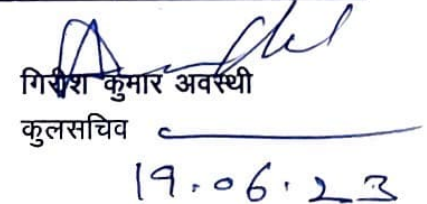 गिरीश कुमार अवस्थी
कुलसचिव
19.06.23